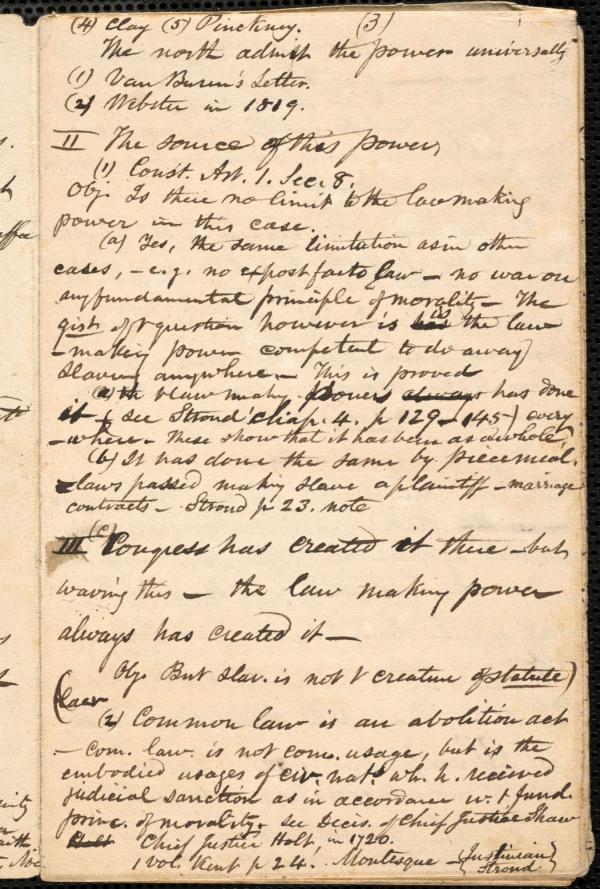 (4) Clay (5) Pinckney. (3)
The north admit the power universally
(1) Van Buren's Letter.
(2) Webster in 1819.
II The source of this power,
(1) Const. Art. 1. Sec. 8.
Obj. Is there no limit to the law making
power in this case.
(a) Yes, the same limitation as in other
cases, - e.g. no expost facto law - no war on
any fundamental principle of morality - The
gist of t question however is is the law
-making power competent to do away
Slavery anywhere - This is proved
t law making powers always has done
it - (see Stroud chap. 4. p 129-145-) every
-where - these show that it has been as a whole,
(b) It has done the same by piecemeal.
-laws passed making slave a plaintiff - marriage
contracts - Stroud p 23. note
III (c) Congress has created it there - but
waving this - the law making power
always has created it -
(Obj. But slav. is not t creature of statute)
law
(2) Common law is an abolition act
- com. law. is not com. usage, but is the
embodied usages of civ. nat.s wh. h. received
judicial sanction as in accordance w. t fund.
princ. of morality - see Decis. of Chief Justice Shaw
Holt Chief Justice Holt, in 1720.
1 vol. Kent p 24. Montesque (Justinian
Stroud)